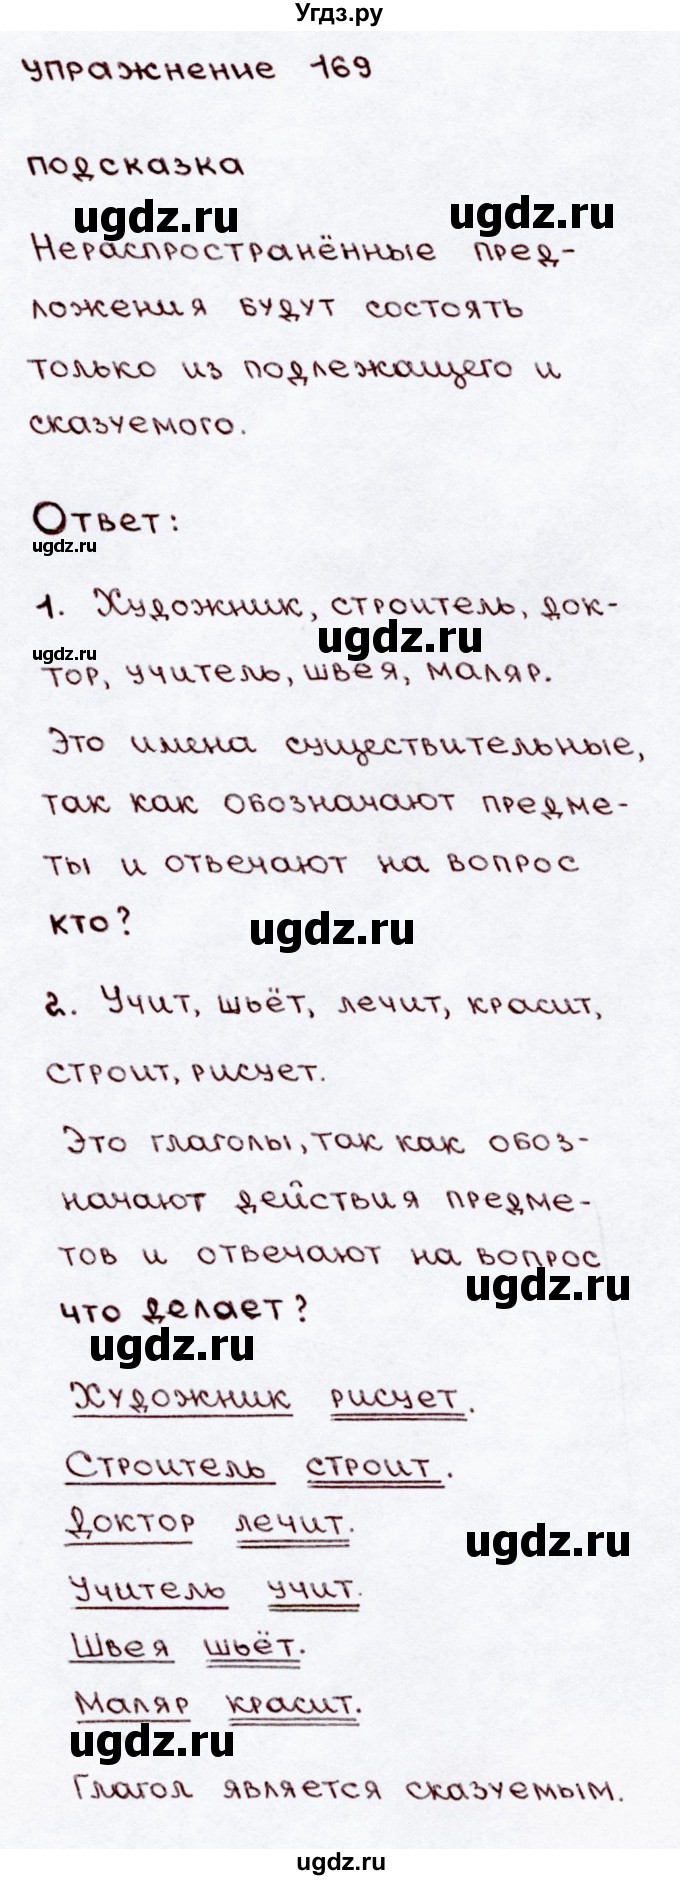 Угдз.ру
упражнение 169
подсказка
ugdz.ru
ugdz.ru
Нераспространённые пред-
ложения будут состоять
только из подлежащего и
сказуемого.
Ответ:
ugdz.ru
1. Художник, строитель, док-
ugdz.ru
ugdz.ru
тор, учитель, швея, маляр.
Это имена существительные,
так как обозначают предме-
ты и отвечают на вопрос
кто?
ugdz.ru
2. Учит, шьёт, лечит, красит,
строит, рисует.
Это глаголы, так как обоз-
начают действия предме-
тов и отвечают на вопрос
ugdz.ru
что делает?
ugdz.ru
Художник рисует.
Строитель строит.
Доктор лечит.
ugdz.ru
Учитель учит.
Швея шьёт.
Маляр красит.
ugdz.ru
Глагол является сказуемым.
ugdz.ru